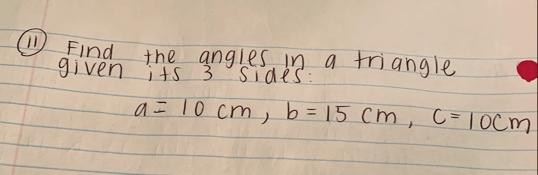 11 Find the angles in a triangle
given its 3 sides:
a = 10 cm, b = 15 cm, c = 10cm